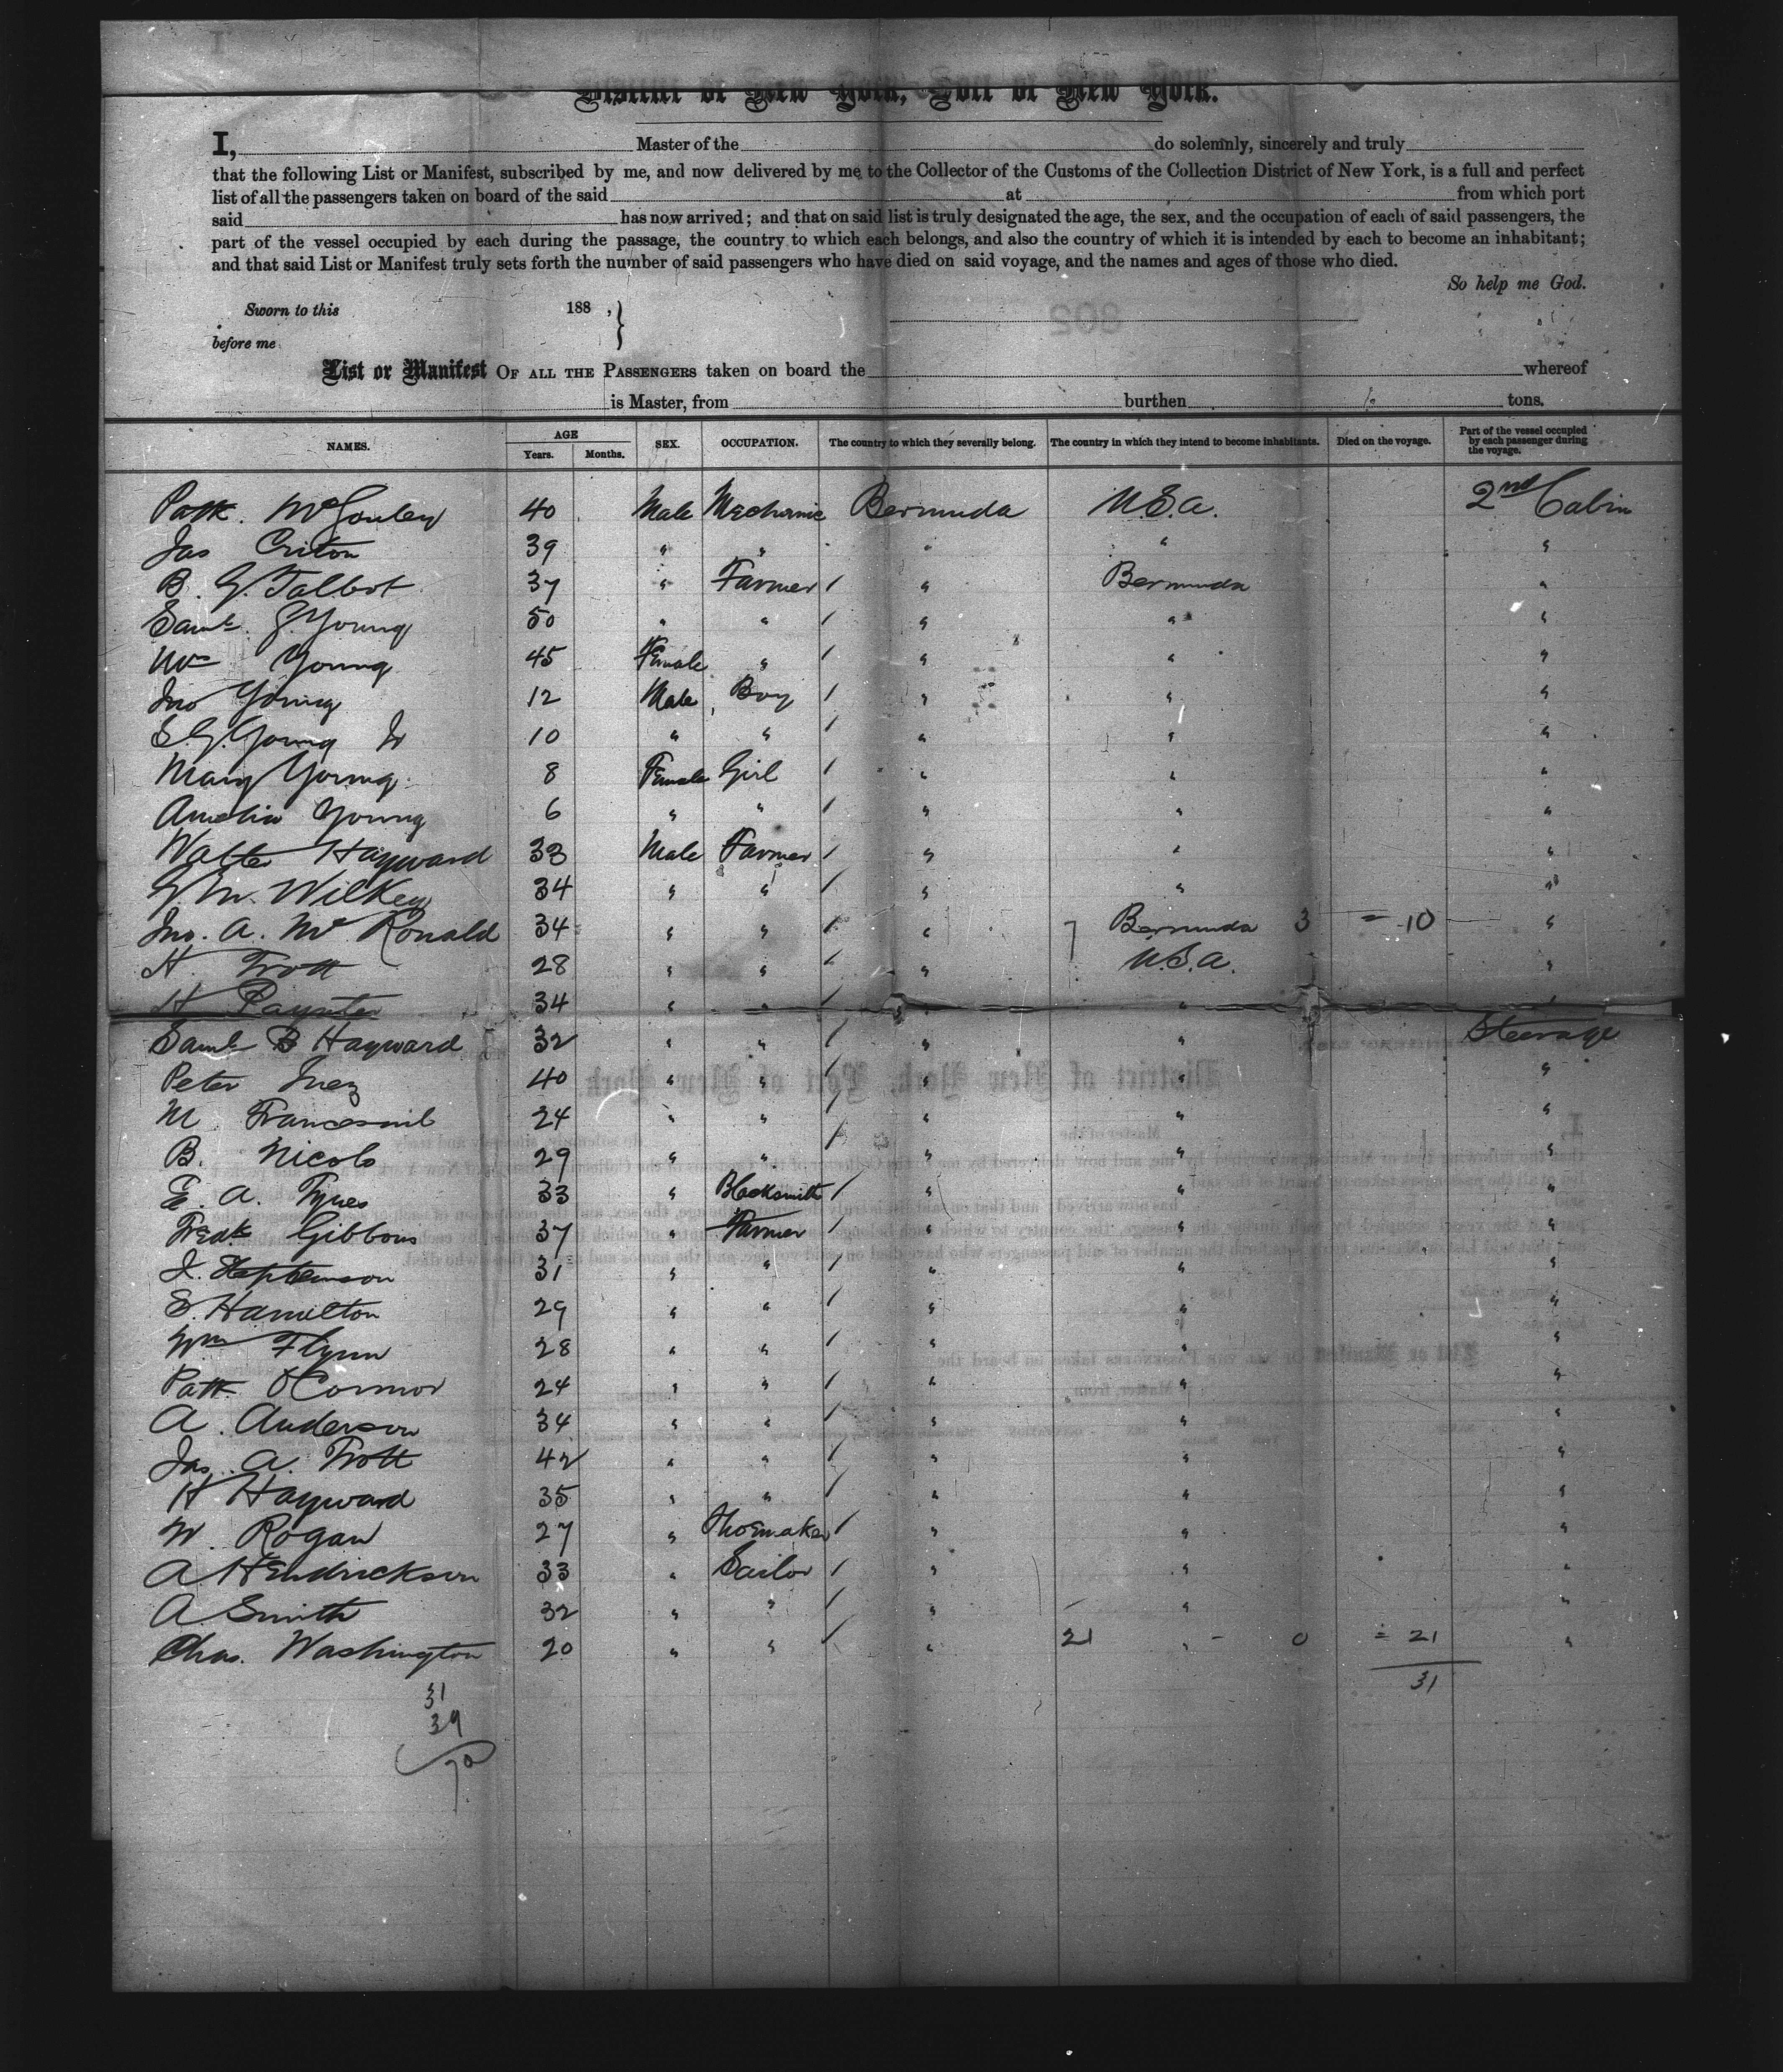 District of New York, Port of New York.
I, Master of the do solemnly, sincerely and truly
that the following List or Manifest, subscribed by me, and now delivered by me to the Collector of the Customs of the Collection District of New York, is a full and perfect
list of all the passengers taken on board of the said at from which port
said has now arrived; and that on said list is truly designated the age, the sex, and the occupation of each of said passengers, the
part of the vessel occupied by each during the passage, the country to which each belongs, and also the country of which it is intended by each to become an inhabitant;
and that said List or Manifest truly sets forth the number of said passengers who have died on said voyage, and the names and ages of those who died.
So help me God.
Sworn to this 188 ,
before me
List or Manifest OF ALL THE PASSENGERS taken on board the whereof
is Master, from burthen tons.
NAMES. AGE Years. Months. SEX. OCCUPATION. The country to which they severally belong. The country in which they intend to become inhabitants. Died on the voyage. Part of the vessel occupied by each passenger during the voyage.
Patk. 40 Male Mechanic Bermuda U.S.a. 2nd Cabin
Jas Criton 39 " " " " "
B. G. Talbot 37 " Farmer / " Bermuda "
Saml. G. Young 50 " " / " " "
Mrs Young 45 Female " / " " "
Jno Young 12 Male Boy / " " "
S. G. Young Jr 10 " " / " " "
Mary Young 8 Female Girl / " " "
Amelia Young 6 " " / " " "
Walter Hayward 33 Male Farmer / " " "
G. M. Wilkey 34 " " / " " "
Jno. A. Mc Ronald 34 " " / " 7 Bermuda 3 = 10 "
H. Trott 28 " " / " U.S.a. "
H Paynter 34 " " / " " "
Saml B Hayward 32 " " / " " Steerage
Peter Inez 40 " " / " " "
M. 24 " " / " " "
B. Nicolo 29 " " / " " "
E. A. Tynes 33 " Blacksmith / " " "
Fredk Gibbons 37 " Farmer / " " "
J. Stephenson 31 " " / " " "
S. Hamilton 29 " " / " " "
Wm Flynn 28 " " / " " "
Patk O'Connor 24 " " / " " "
A. Anderson 34 " " / " " "
Jas. A. Trott 42 " " / " " "
H Hayward 35 " " / " " "
W. Rogan 27 " Shoemaker / " " "
A Hendrickson 33 " Sailor / " " "
A Smith 32 " " / " " "
Chas. Washington 20 " " / " 21 " - 0 = 21 "
31
31
39
70